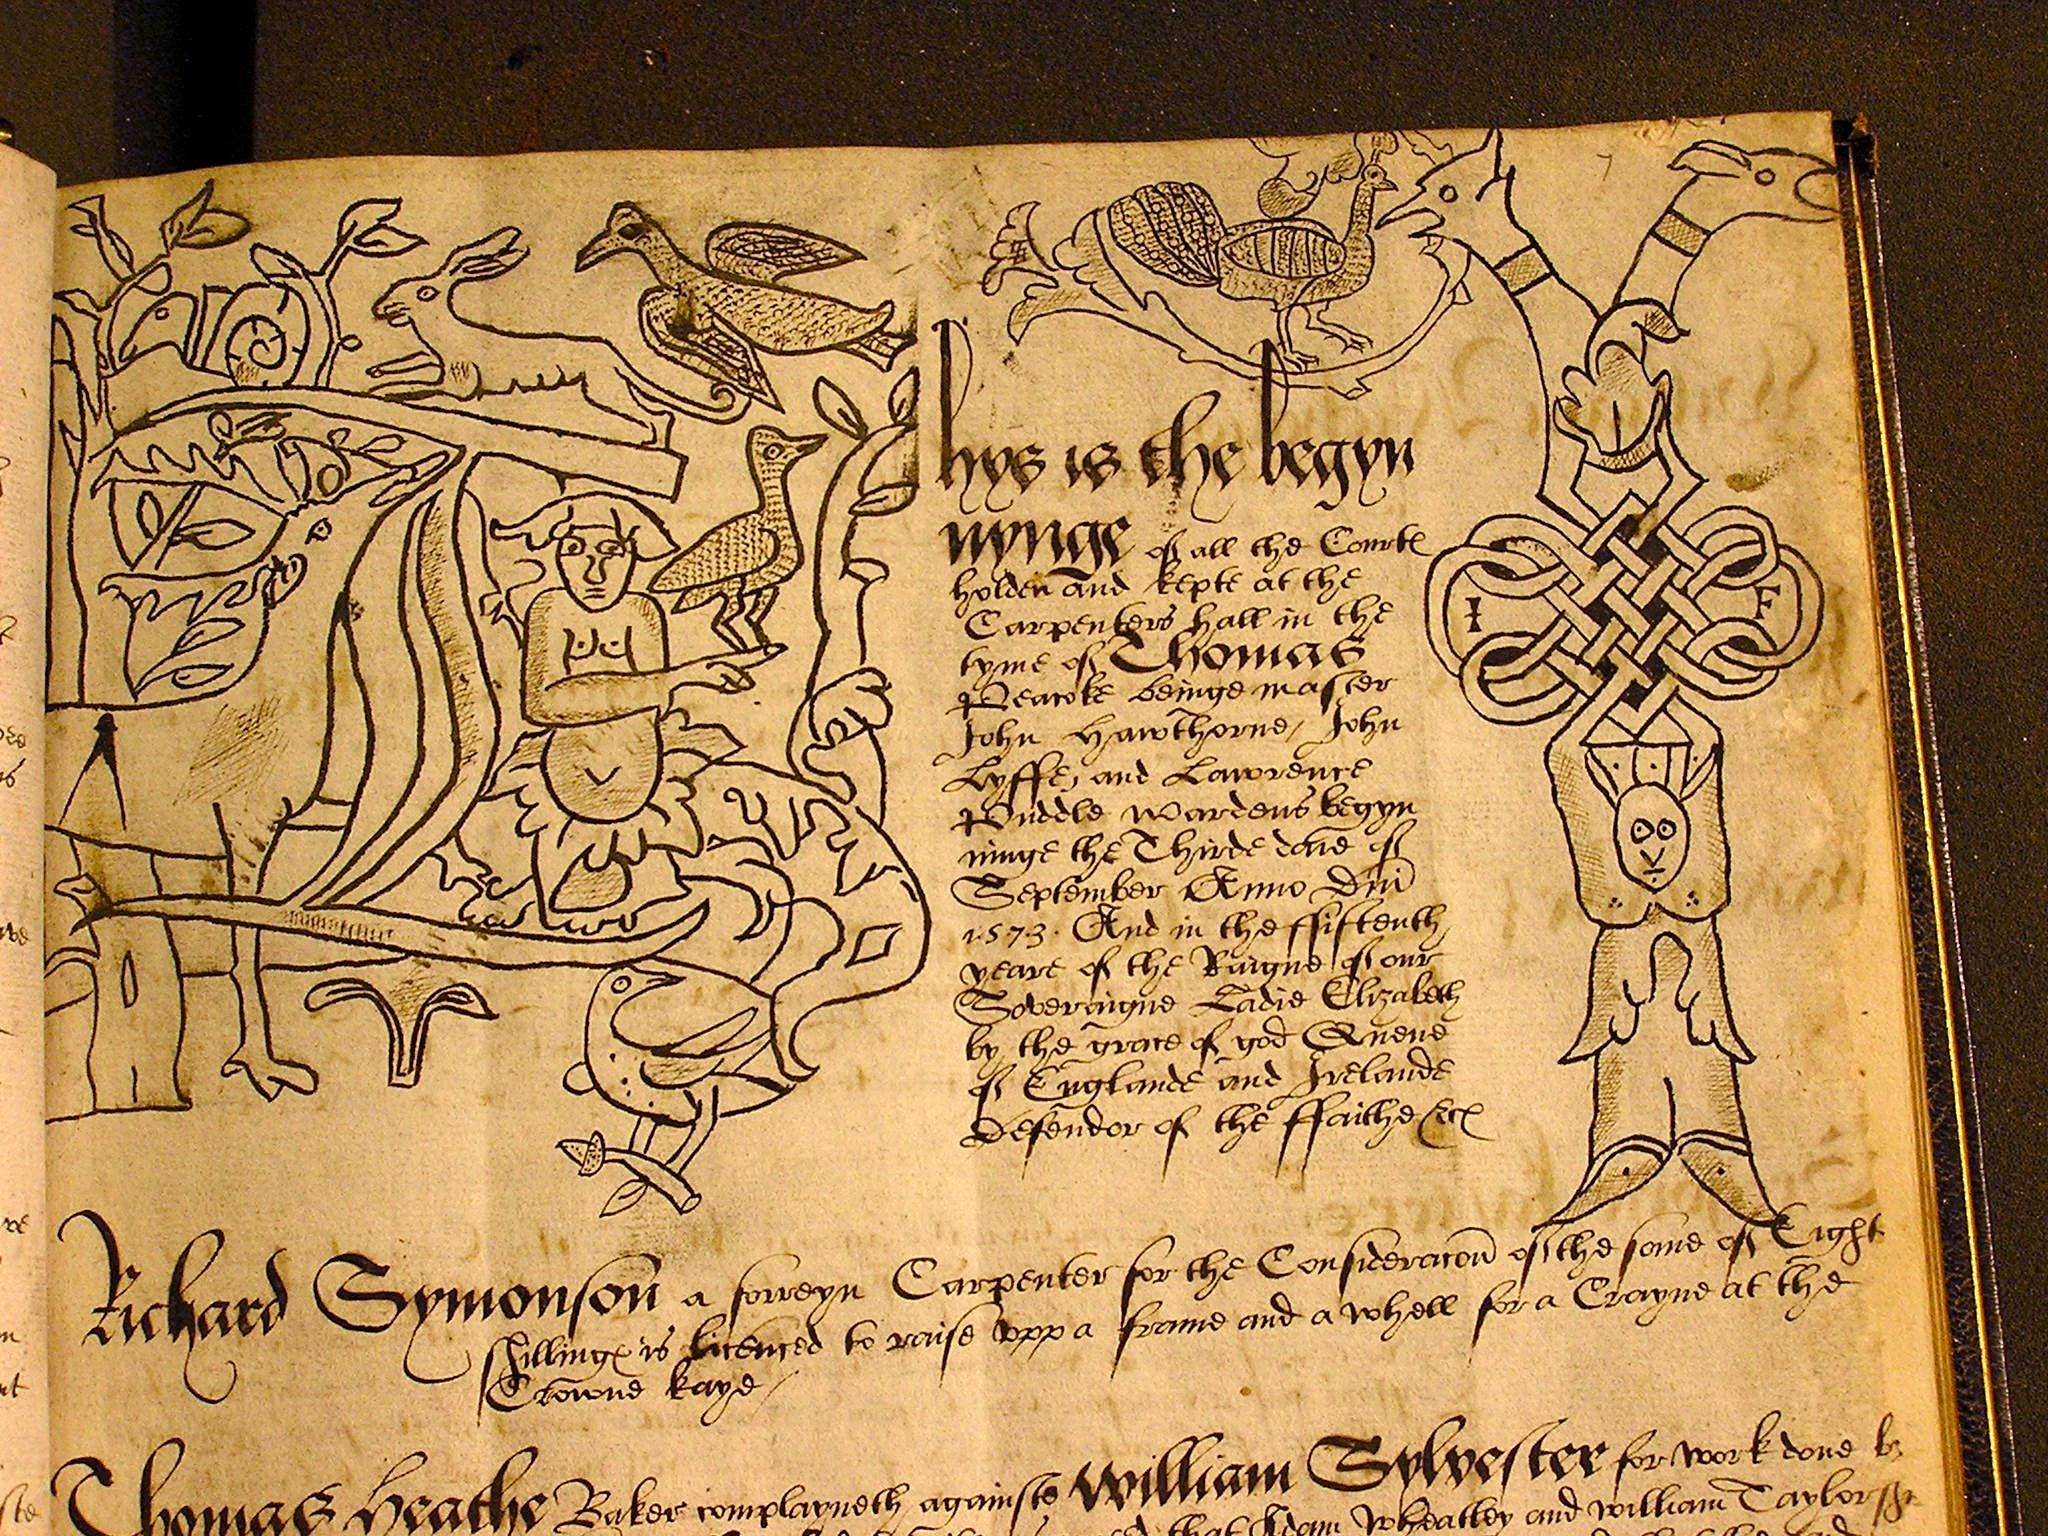 Thys is the begyn
nynge of all the Courtes
holden and kepte at the
Carpenters hall in the
tyme of Thomas
Peacoke beinge master
John Hawthorne, John
Lyffe, and Lawrence
Puddle wardens begyn
ninge the Thirde daie of
September Anno Dni
1573. And in the ffiftenth
yeare of the Raigne of our
Soveraigne Ladie Elizabeth
by the grace of god Quene
of Englande and Irelande
Defendor of the ffaithe &c
I F
Richard Symonson a forreyn Carpenter for the Consideracon of the some of Eight
shillings is licenced to raise vpp a frame and a whell for a Crayne at the
Crowne kaye
Thomas Heathe Baker complayneth againste William Sylvester for work done by
that Adam Wheatley and William Taylor